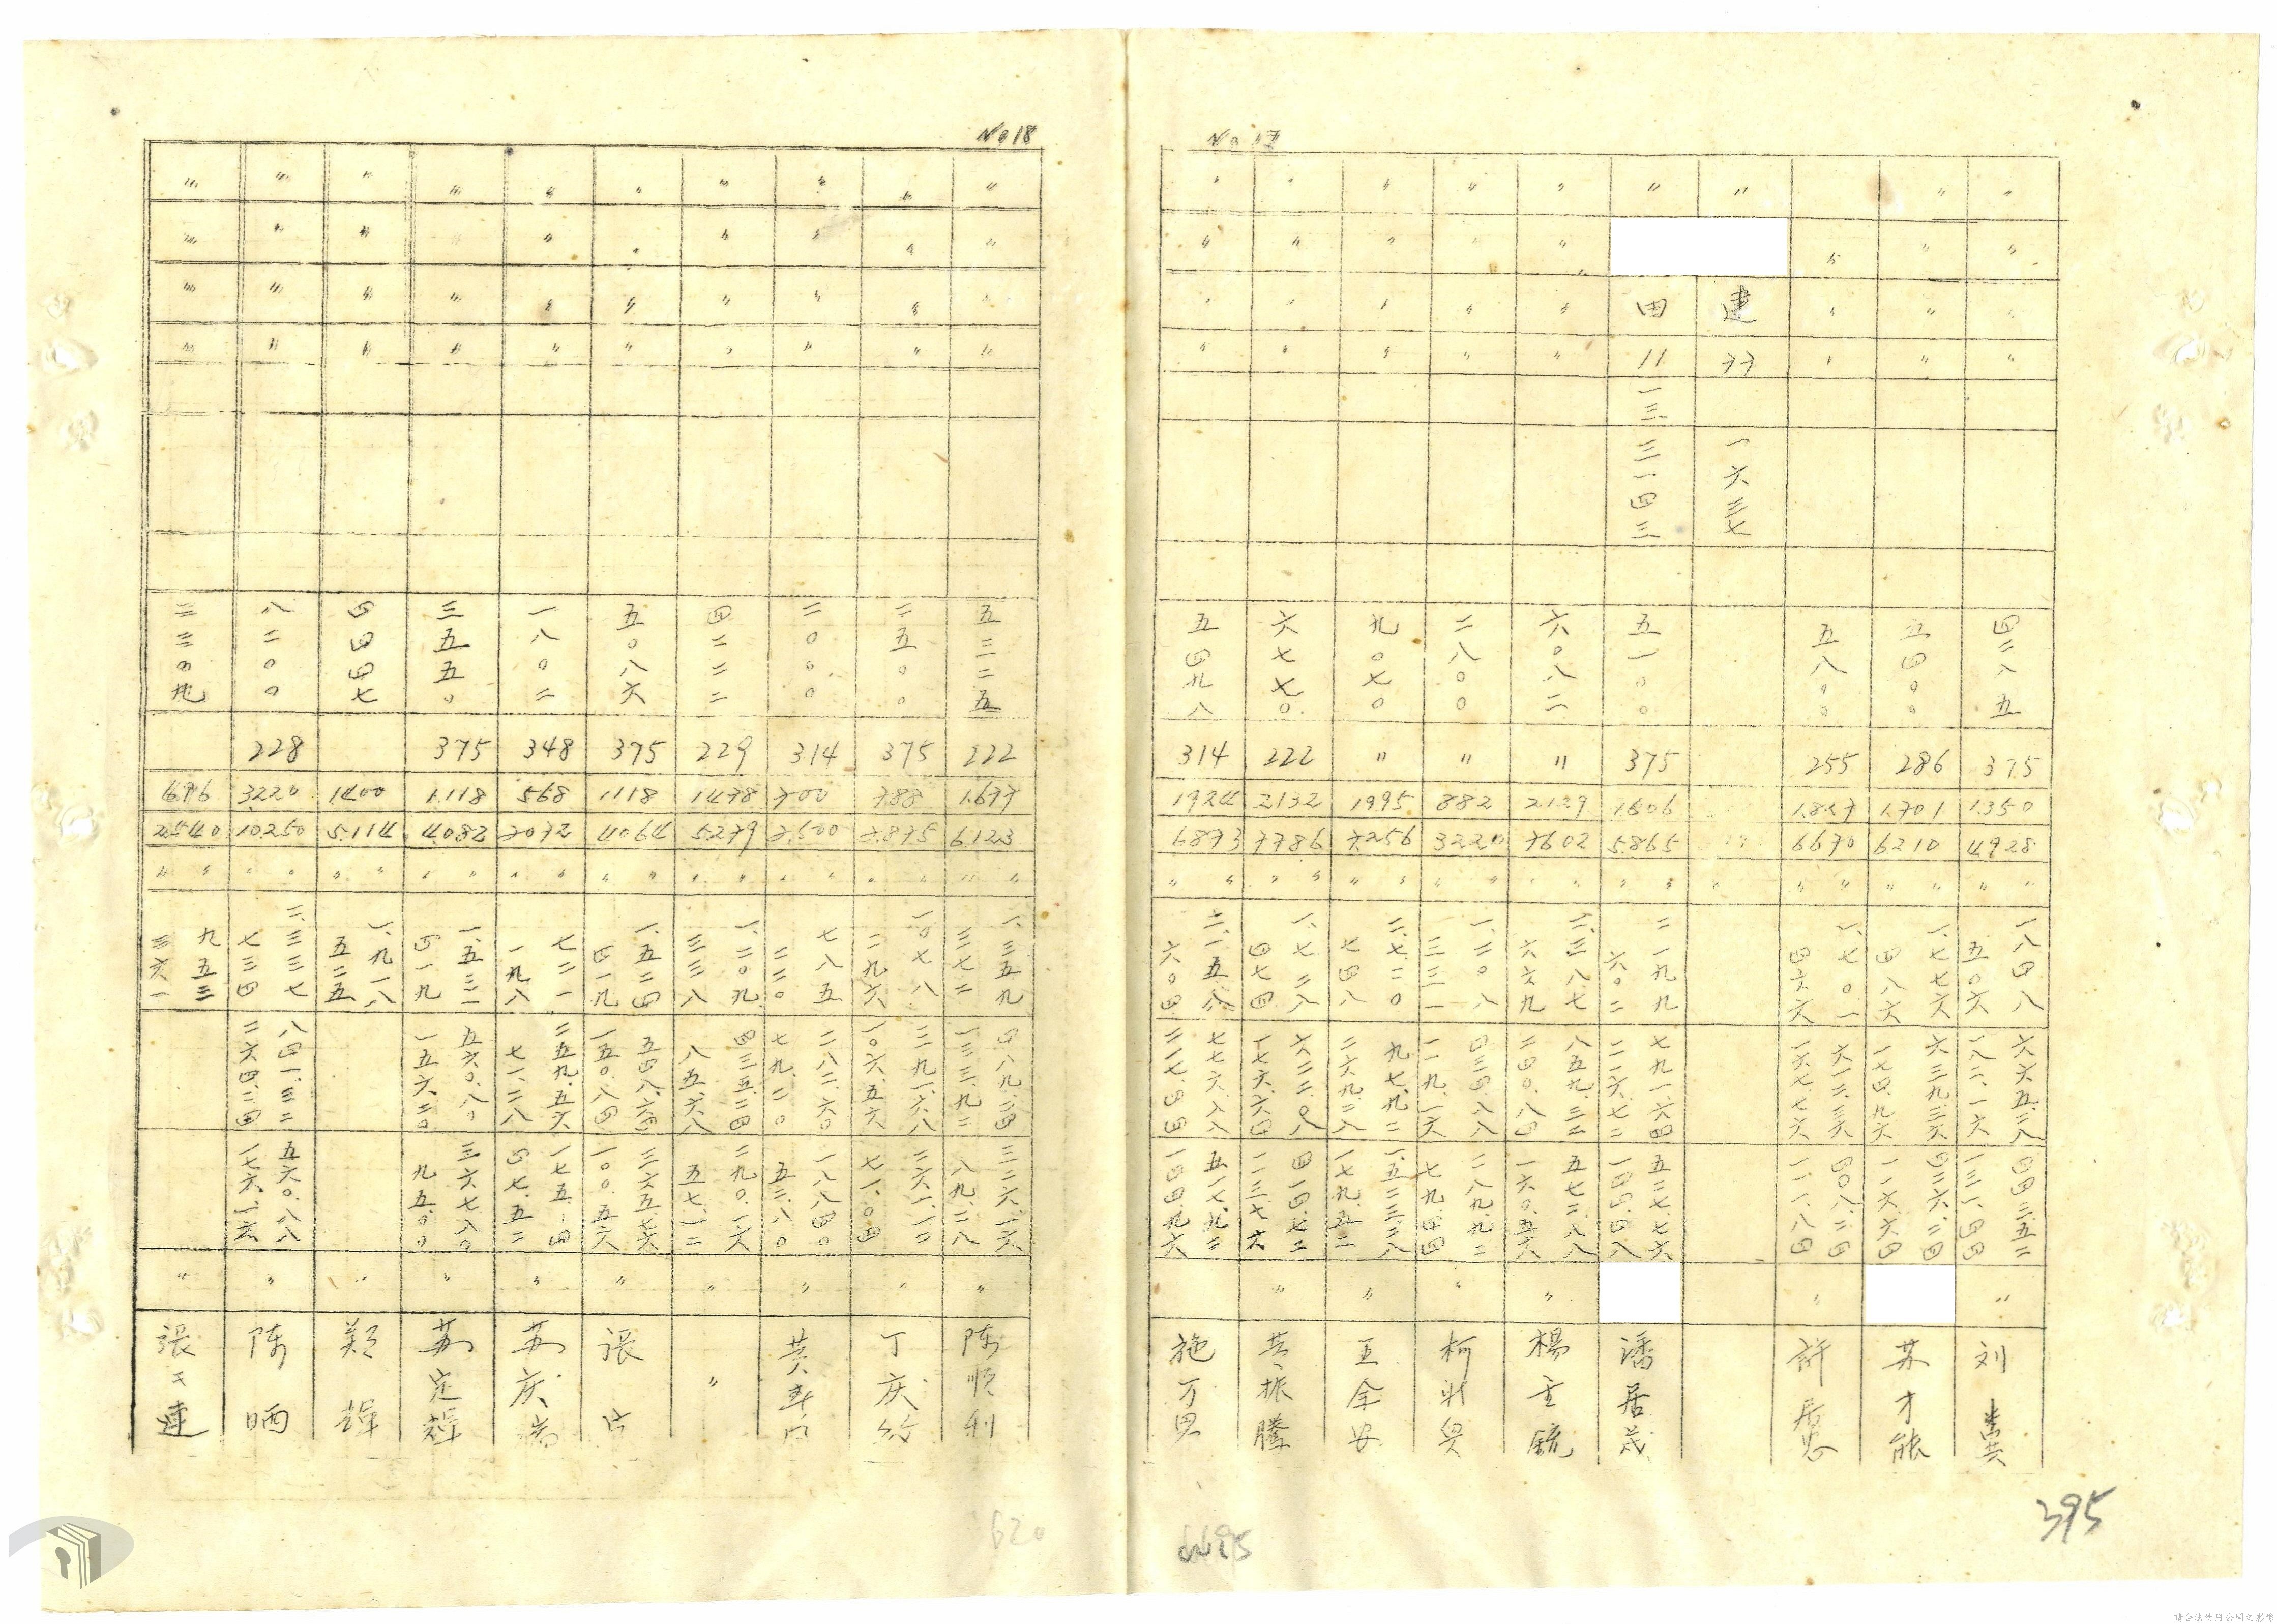 No 17
〃
〃
〃
四二八五
375
1.350
4928
〃 〃
一八四八
五〇六
六六五.二八
一八二.一六
四四三.五二
一三一.四四
〃
刘
〃
〃
〃
〃
五四〇〇
286
1.701
6210
〃 〃
一、七七六
四八六
六三九.三六
一七四.九六
四二六.二四
一一六.六四
苏才能
〃
〃
〃
五八〇〇
255
1.827
6670
〃 〃
一、七〇一
四六六
六一二.三六
一六七.七六
四〇八.二四
一一一.八四
〃
許居
〃
建
77
一六三七
〃
田
11
一三
三一四三
五一〇〇
375
1.606
5.865
〃 〃
二一九九
六〇二
七九一.六四
二一六.七二
五二七.七六
一四四.四八
潘居茂
〃
〃
〃
〃
六〇八二
〃
2129
7602
〃 〃
二、三八七
六六九
八五九.三二
二四〇.八四
五七二.八八
一六〇.五六
〃
楊
〃
〃
〃
〃
二八〇〇
〃
882
3220
〃 〃
一、二〇八
三三一
四三四.八八
一一九.一六
二八九.九二
七九.四四
〃
柯
〃
〃
〃
〃
九〇七〇
〃
1995
7.256
〃 〃
二、七二〇
七四八
二六九.二八
一七九.五二
〃
王金安
〃
〃
〃
〃
六七七〇
222
2132
7786
〃 〃
一、七二八
四七四
六二二.〇八
四一四.七二
一一三.七六
〃
振騰
〃
〃
〃
〃
五四九八
314
1924
6873
〃 〃
二、一五八
六〇四
七七六.八八
二一七.四四
五一七.九二
一四四.九六
施万
395
No 18
〃
〃
〃
五三二五
222
1.677
6.123
〃 〃
一、三五九
三七二
四八九.二四
一三三.九二
三二六.一六
八九.二八
〃
陈順利
〃
〃
〃
〃
二五〇〇
375
788
2.875
〃 〃
一、〇七八
二九六
一〇六.五六
七一.〇四
〃
丁庆
〃
〃
〃
〃
二〇〇〇
314
700
〃 〃
七八五
二二〇
二八二.六〇
七九.二〇
一八八.四〇
五二.八〇
〃
黄
〃
〃
〃
〃
四二二二
229
1478
5.279
〃 〃
一、二〇九
三三八
四三五.二四
八五.六八
二九〇.一六
五七.一二
〃
〃
〃
〃
〃
〃
五〇八六
375
1118
4064
〃 〃
一、五二四
四一九
五四八.六四
一五〇.八四
三六五.七六
一〇〇.五六
〃
張
〃
〃
〃
〃
一八〇二
348
568
〃 〃
七二一
一九八
二五九.五六
七一.二八
四七.五二
〃
苏庆
〃
〃
〃
三五五〇
375
1.118
4.082
〃 〃
一、五三一
四一九
一五六.二〇
三六七.八〇
九五.〇〇
〃
苏定輝
〃
〃
〃
〃
四四四七
1400
5.114
〃 〃
一、九一八
五二五
〃
鄭輝
〃
〃
〃
〃
八二〇〇
228
3220
10.250
〃 〃
二、三三七
七三四
八四一.三二
二六四.二四
五六〇.八八
一七六.一六
〃
陈晒
〃
〃
〃
〃
696
2540
〃 〃
九五三
二六一
〃
張
620
請合法使用公開之影像